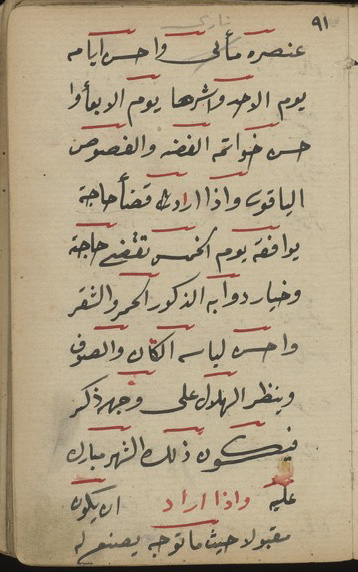 ٩١
عنصره مأئى واحسن ايامه
يوم الاحد واشرها يوم الاربعا وا
حسن خواتمه الفضه والفصوص
الياقوت واذا اراد قضأ حاجة
يوافقه يوم الخمس تقضى حاجة
وخيار دوابه الذكور الحمر والشقر
واحسن لباسه الكتان والصوف
وينظر الهلال على وجهه ذكر
فيكون ذلك الشهر مبارك
عليه واذا اراد ان يكون
مقبولا حيث ما توجه يصنع له